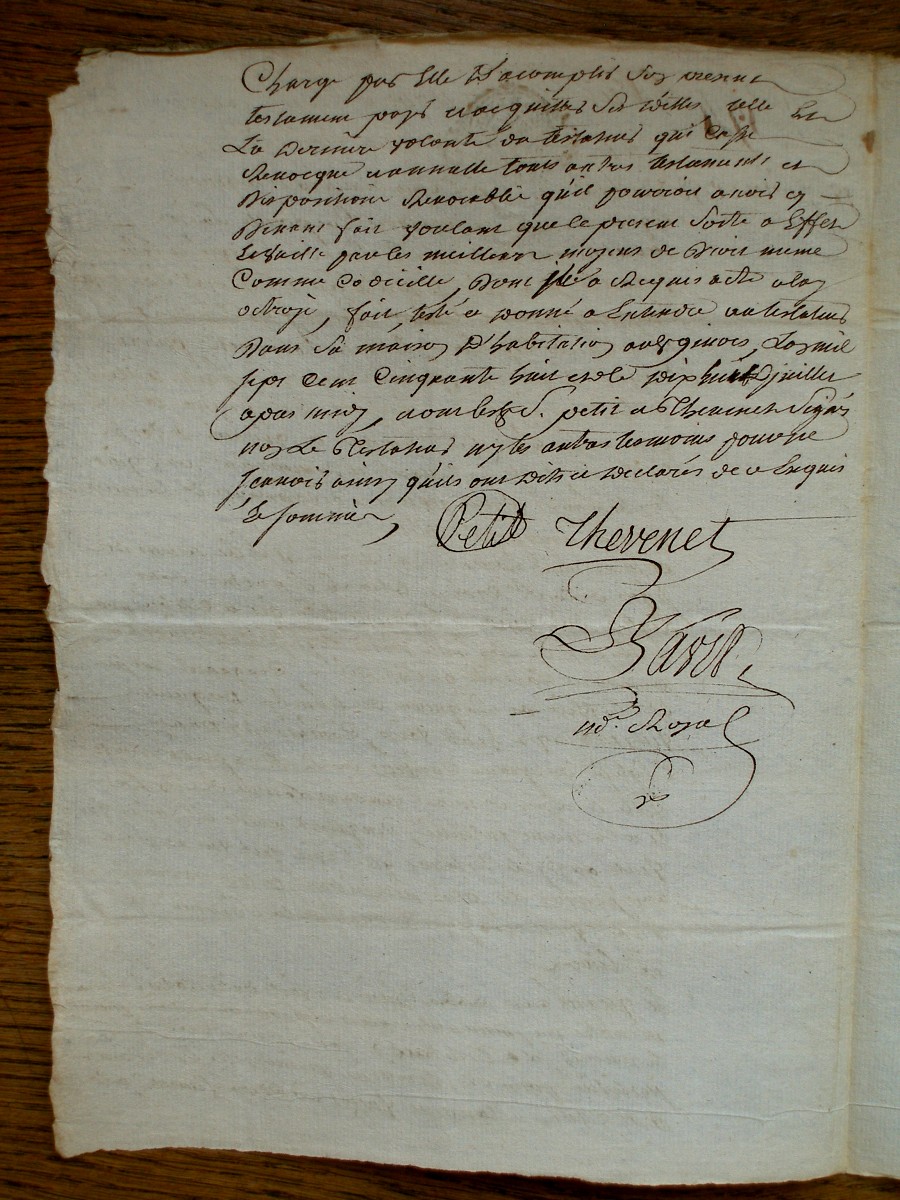 Charge par Elle d'acomplir son present
testament payé et acquitter ses dettes telle Est
La Derniere volonté du testateur qui Casse
Revocque et annulle touts autres testaments et
Dispositions Revocable qu'il pourroit avoir cy
Devant fait voulant que le present Sorte a Effet
Et vaille par les meilleurs moyens de Droit meme
Comme Codicille, Dont il a Requis acte a luy
octroyé, fait, leü et donné a Entendre au testateur
Dans Sa maison D'habitation, L'an mil
sept Cent Cinquante huit et le Dix huit juillet
apres midy, avont lesd. S. petit et Thevenet Signés
non Le Testateur ny les autres temoins pour ne
sçavoir ainsy qu'ils ont Dits et Declarés de ce Enquis
Et sommés,
Petit Thevenet
David
nore. Royal